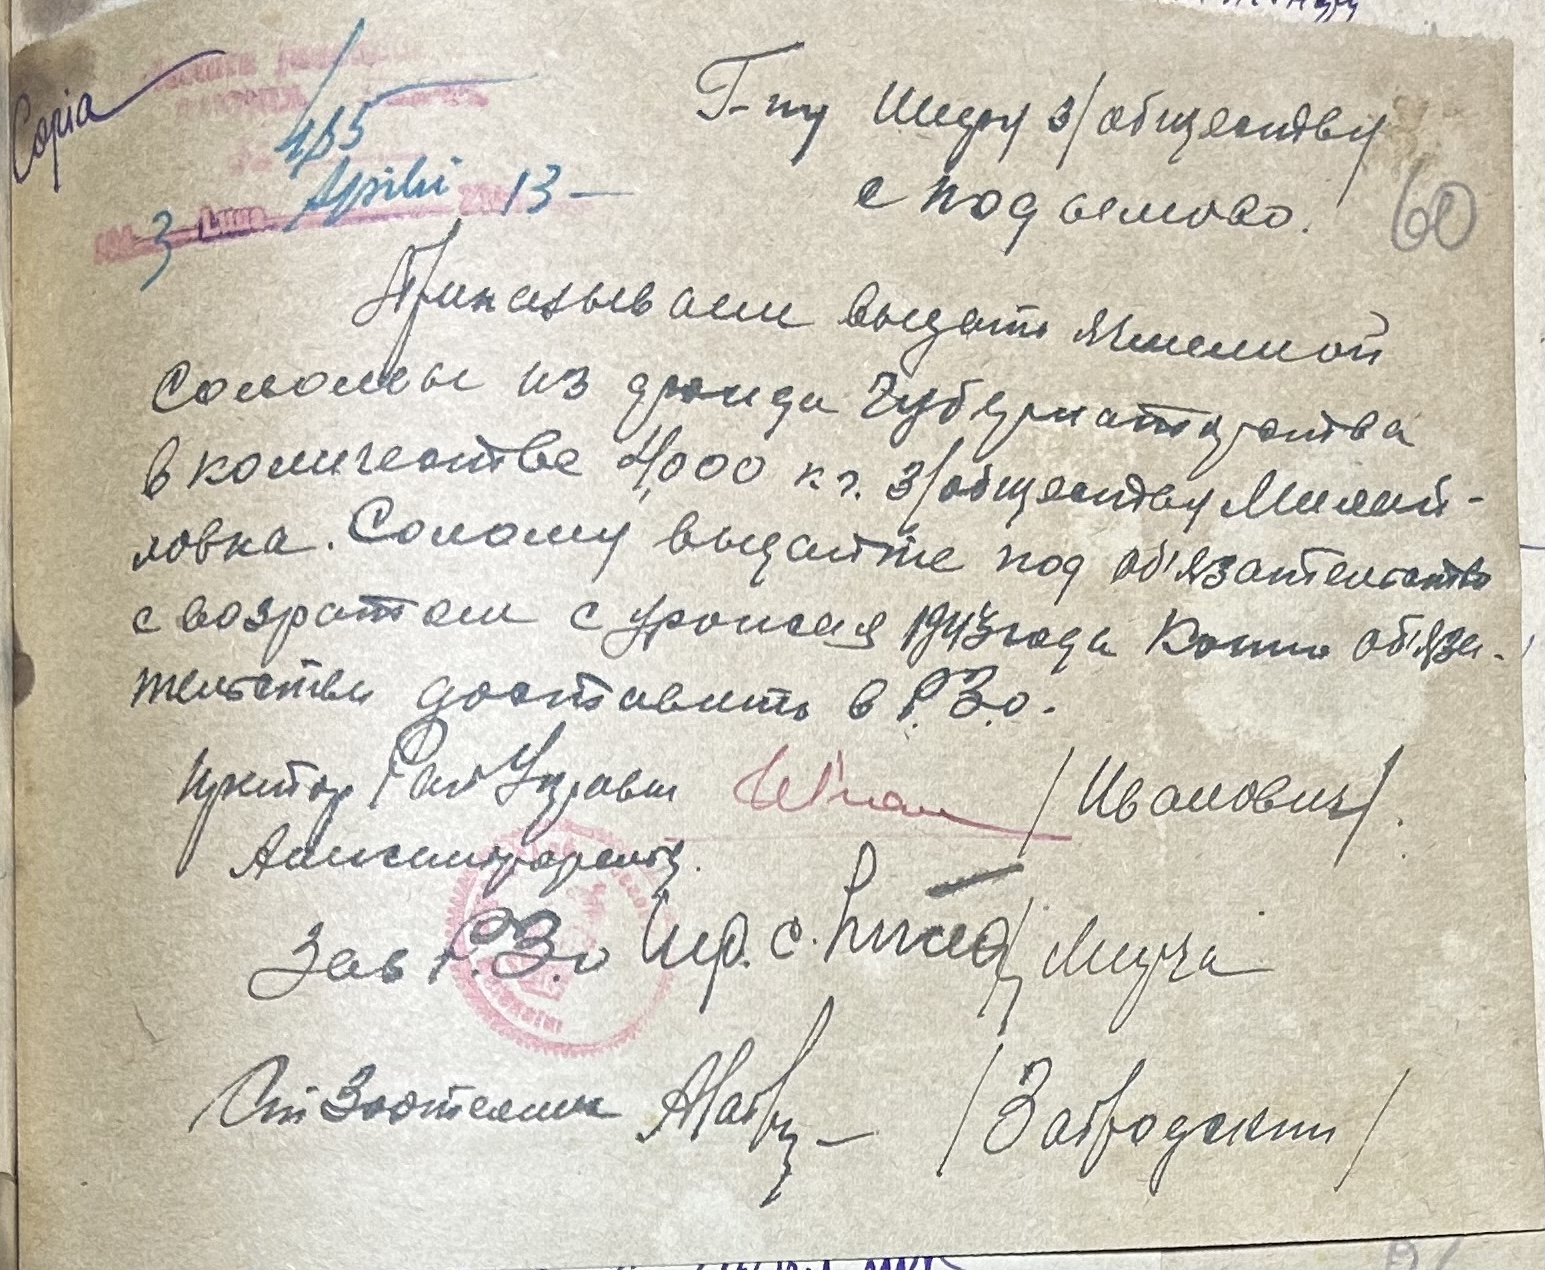 Copia
485
3 Luna Aprilie 13
Г-ну Шефу з/обществу
с Подоймово.
60
Приказываем выдать ячменной
соломы из фонда Губернаторства
в количестве 4,000 кг. з/обществу Михай-
ловка. Солому выдайте под об'язательство
с возратом с урожая 1943 года Копию об'яза-
тельства доставить в Р.З.о.
Претор Рай Управы /Иванович/.
Зав Р.З.о с. /Муча
Ст Зоотехник /Забродский/